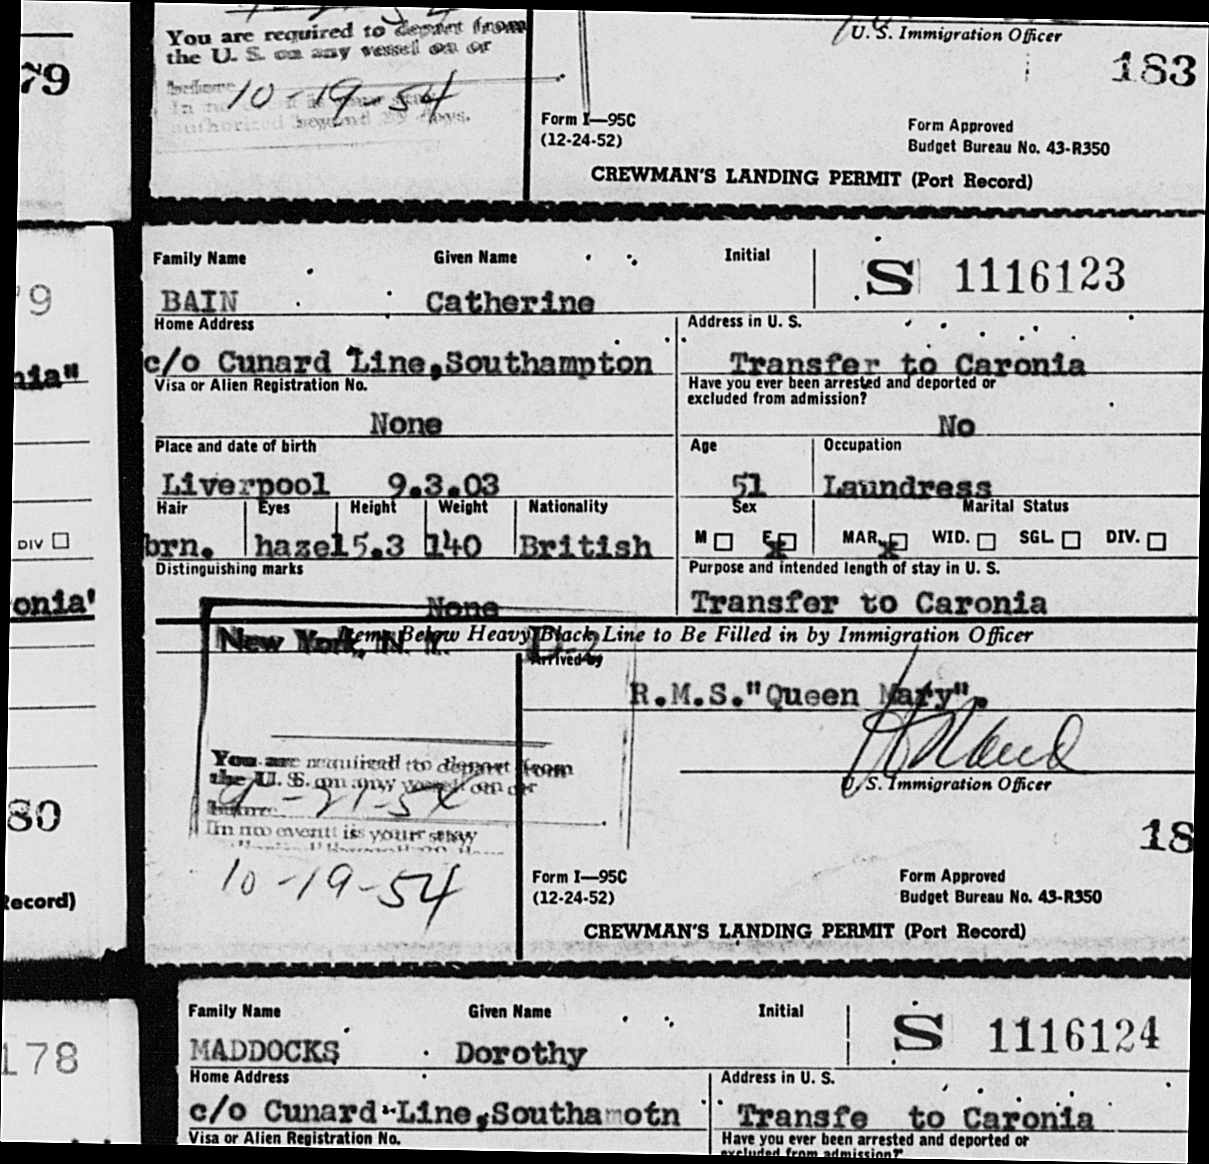 79
You are required to depart from
the U. S. on any vessel on or
before
10-19-54
U. S. Immigration Officer
183
Form I—95C
(12-24-52)
Form Approved
Budget Bureau No. 43-R350
CREWMAN'S LANDING PERMIT (Port Record)
Family Name Given Name Initial S 1116123
BAIN Catherine
Home Address Address in U. S.
c/o Cunard Line,Southampton Transfer to Caronia
Visa or Alien Registration No. Have you ever been arrested and deported or
excluded from admission?
None No
Place and date of birth Age Occupation
Liverpool 9.3.03 51 Laundress
Hair Eyes Height Weight Nationality Sex Marital Status
brn. hazel 5.3 140 British M F MAR. WID. SGL. DIV.
Distinguishing marks Purpose and intended length of stay in U. S.
None Transfer to Caronia
Items Below Heavy Black Line to Be Filled in by Immigration Officer
New York, N. Y. D-2
Arrived by
R.M.S."Queen Mary".
You are required to depart from
the U. S. on any vessel on or
before
In no event is your stay
U. S. Immigration Officer
18
10-19-54
Form I—95C
(12-24-52)
Form Approved
Budget Bureau No. 43-R350
CREWMAN'S LANDING PERMIT (Port Record)
Family Name Given Name Initial S 1116124
MADDOCKS Dorothy
Home Address Address in U. S.
c/o Cunard Line,Southa motn Transfe to Caronia
Visa or Alien Registration No. Have you ever been arrested and deported or
excluded from admission?
9
nia"
DIV
onia'
80
Record)
178